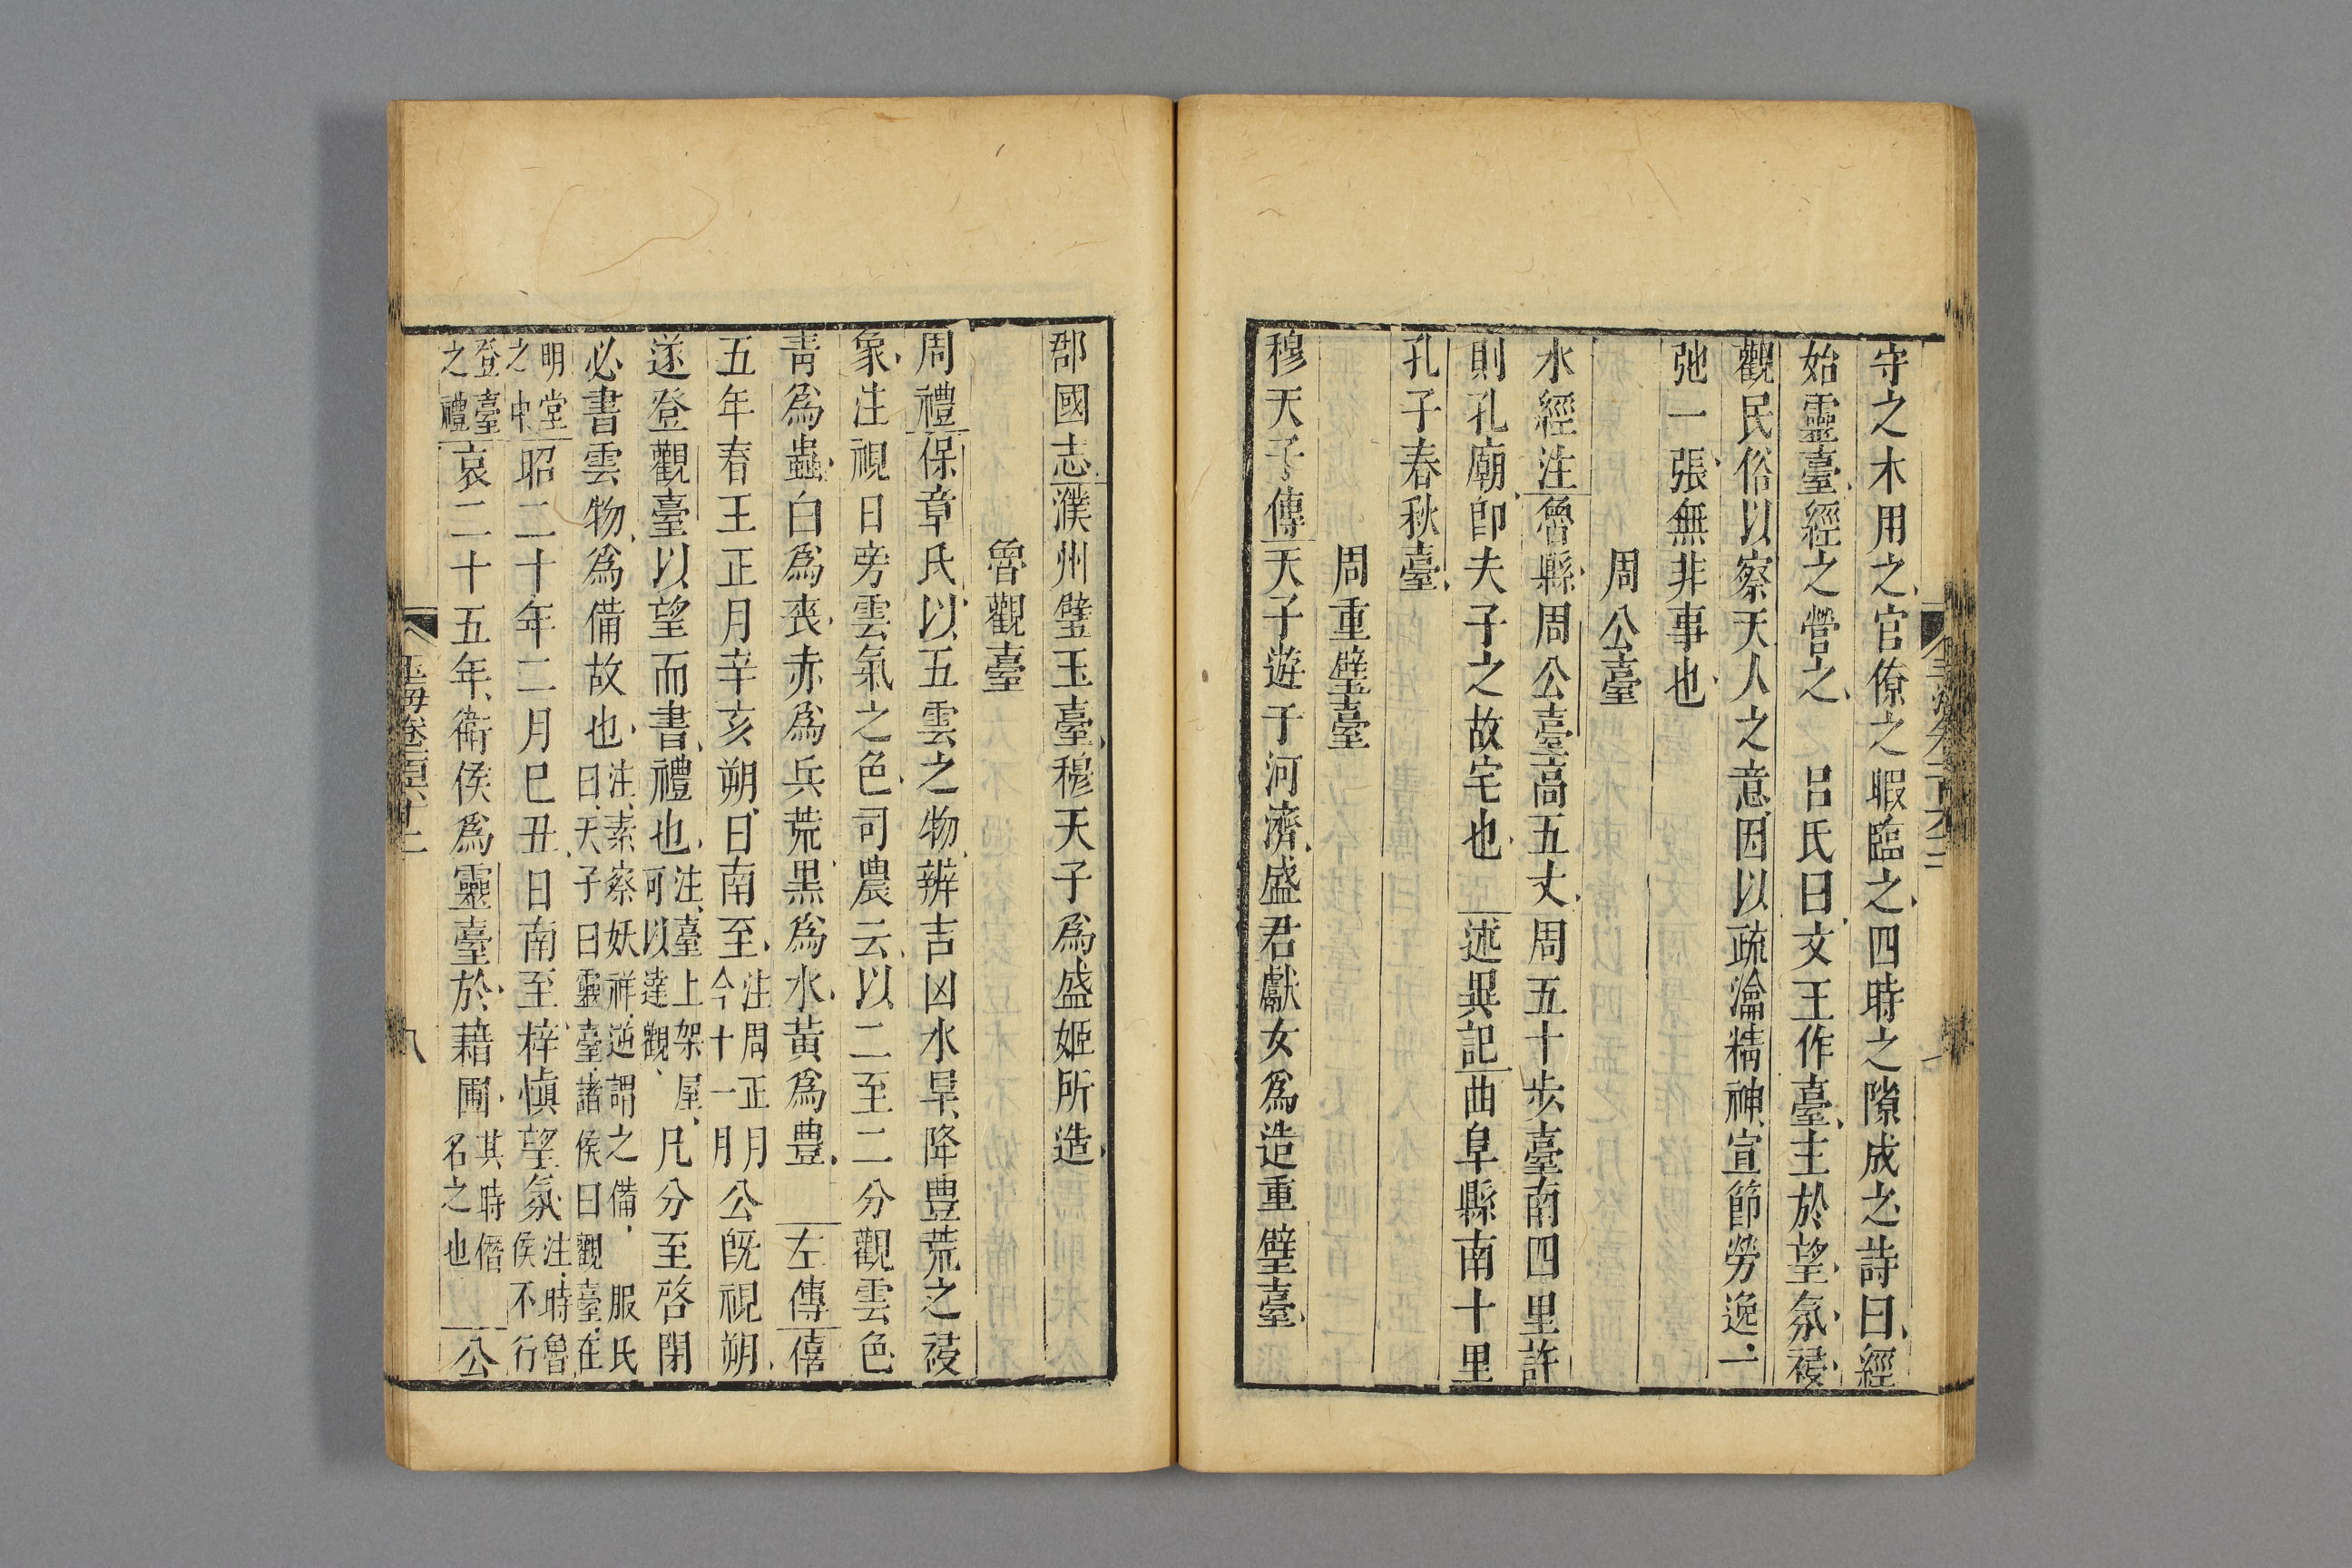 守之木用之官僚之暇臨之四時之隙成之詩曰經
始靈臺經之營之　呂氏曰文王作臺主於望氛祲
觀民俗以察天人之意因以疏瀹精神宣節勞逸一
弛一張無非事也
周公臺
水經注魯縣周公臺高五丈周五十步臺南四里許
則孔廟即夫子之故宅也　述異記曲阜縣南十里
孔子春秋臺
周重璧臺
穆天子傳天子遊于河濟盛君獻女爲造重璧臺
郡國志濮州璧玉臺穆天子爲盛姬所造
魯觀臺
周禮保章氏以五雲之物辨吉凶水旱降豊荒之祲
象注視日旁雲氣之色司農云以二至二分觀雲色
青爲蟲白爲喪赤爲兵荒黒爲水黃爲豊　左傳僖
五年春王正月辛亥朔日南至注周正月今十一月公旣視朔
遂登觀臺以望而書禮也注臺上架屋可以達觀凡分至啓閉
必書雲物爲備故也注素察妖祥逆謂之備　服氏曰天子曰靈臺諸侯曰觀臺在
明堂之中昭二十年二月巳丑日南至梓慎望氛注時魯侯不行
登臺之禮哀二十五年衛侯爲靈臺於藉圃其時僭名之也　公
玉海卷之百六十二
八